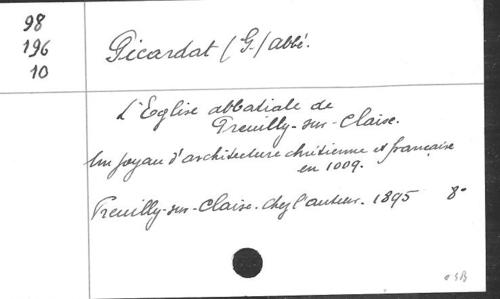 98
196
10
Picardat (G.) abbé.
L'Eglise abbatiale de
Preuilly-sur-Claise.
Un joyau d'architecture chrétienne et française
en 1009.
Preuilly-sur-Claise. Chez l'auteur. 1895 8°